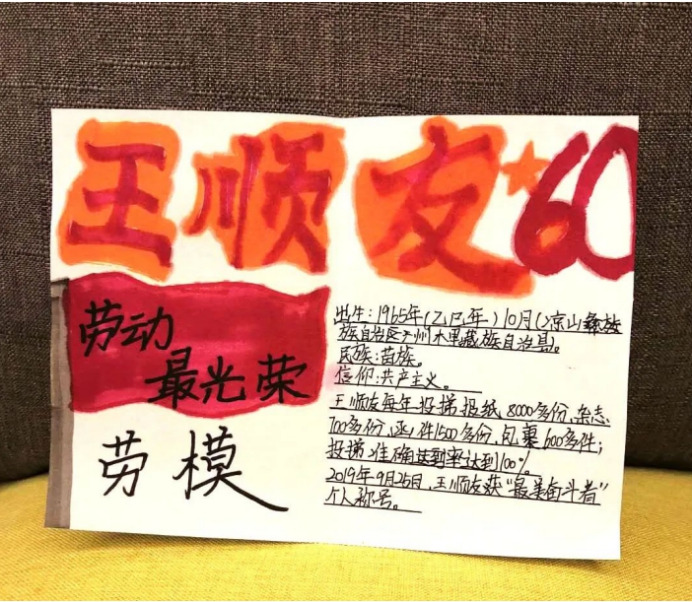 王顺友 60
劳动
最光荣
劳模
出生:1965年(乙巳年)10月(凉山彝族
族自治区州木里藏族自治县)。
民族:苗族。
信仰:共产主义。
王顺友每年投递报纸8000多份、杂志
700多份、函件1500多份、包裹600多件;
投递准确率达到100%
2019年9月25日,王顺友获“最美奋斗者”
个人称号。